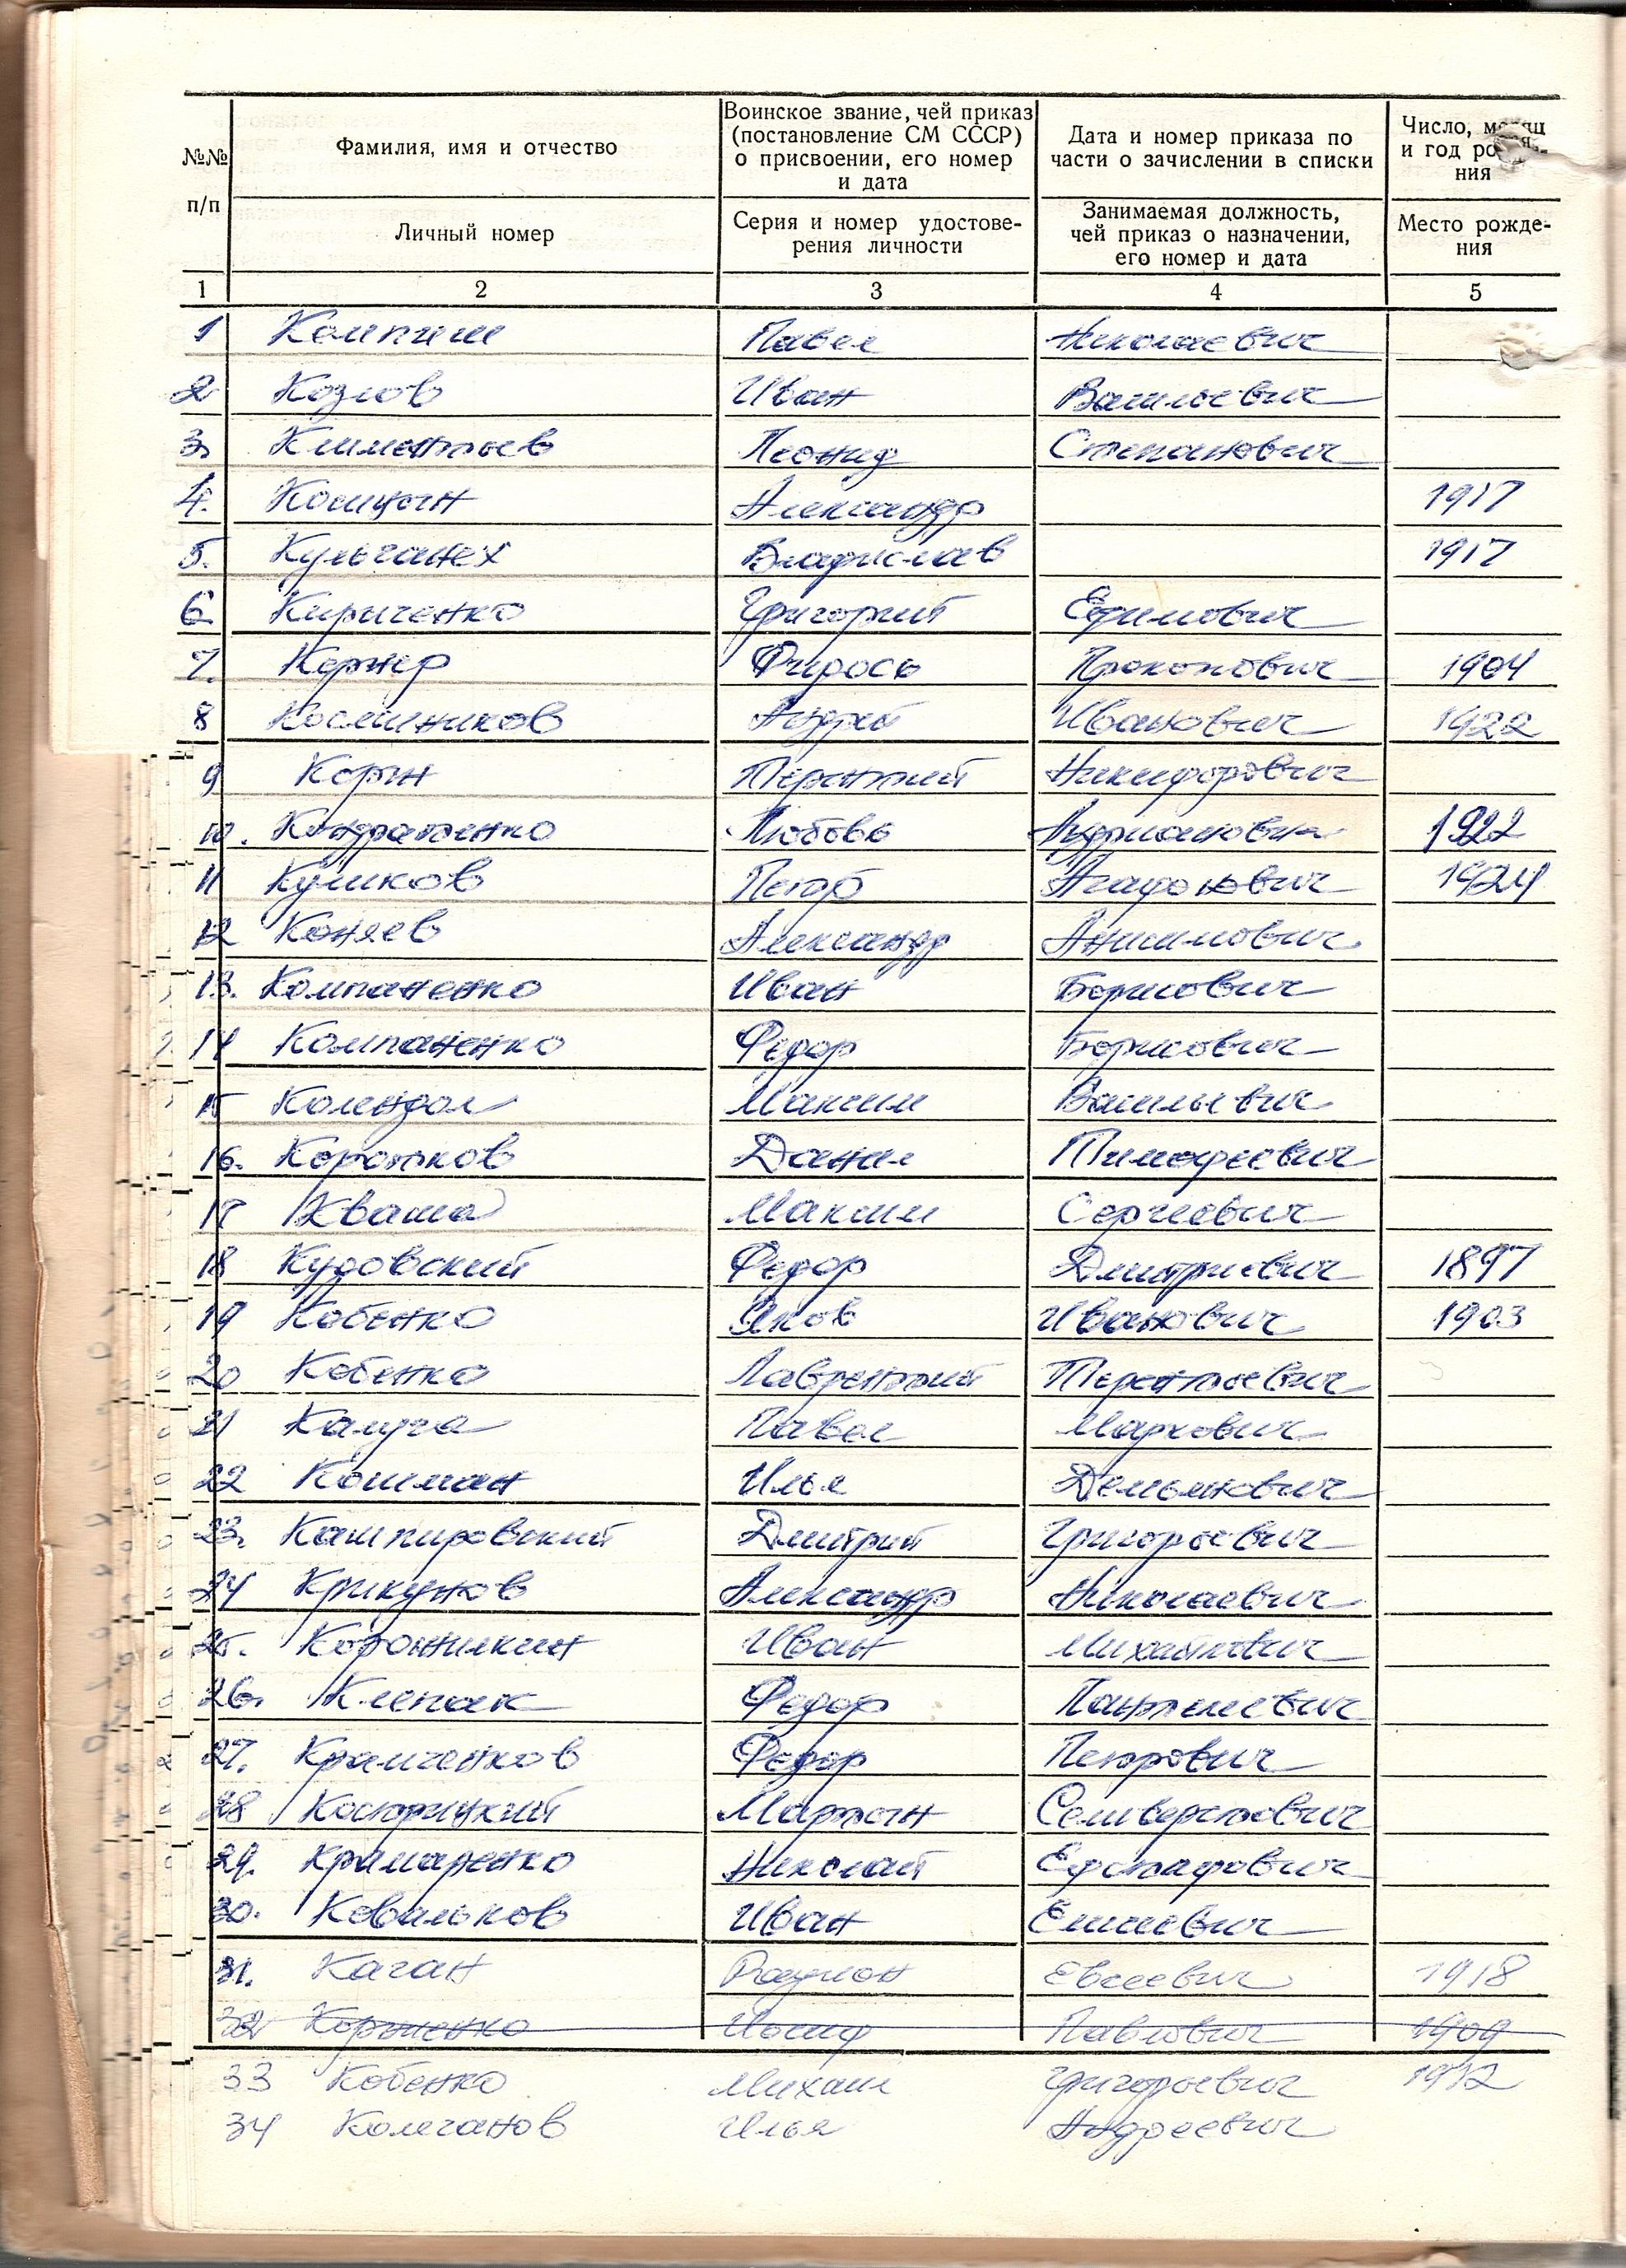 №№ п/п
Фамилия, имя и отчество
Личный номер
Воинское звание, чей приказ
(постановление СМ СССР)
о присвоении, его номер
и дата
Серия и номер удостове-
рения личности
Дата и номер приказа по
части о зачислении в списки
Занимаемая должность,
чей приказ о назначении,
его номер и дата
Число, месяц
и год рожде-
ния
Место рожде-
ния
1 2 3 4 5
1 Павел Николаевич
2 Козлов Иван Васильевич
3. Климентьев Леонид Степанович
4. Кошцын Александр 1917
5. Кульганех Владислав 1917
6. Кириченко Григорий Ефимович
7. Кернер Фидось Прокопович 1904
8 Косенников Андрей Иванович 1922
9 Корж Терентий Никифорович
10. Кондратенко Любовь Адриановна 1922
11 Куликов Петр Агафонович 1924
12 Коняев Александр Анисимович
13. Компаненко Иван Борисович
14 Компаненко Федор Борисович
15 Колендал Максим Васильевич
16. Коротков Данил Тимофеевич
17 Кваша Максим Сергеевич
18 Кудовский Федор Дмитриевич 1897
19 Кобенко Яков Иванович 1903
20 Кобенко Лаврентий Терентьевич
21 Калуга Павел Маркович
22 Кошман Илья Демьянович
23. Кашпировский Дмитрий Григорьевич
24 Крикунов Александр Николаевич
25. Коронилкин Иван Михайлович
26. Клепак Федор Пантелевич
27. Крамченков Федор Петрович
28 Костюрицкий Мартын Селиверстович
29. Крамаренко Николай Евстафович
30. Ковальков Иван Елисевич
31. Каган Радион Евсеевич 1918
32 Корниенко Иосиф Павлович 1909
33 Кобенко Михаил Григорьевич 1912
34 Колганов Илья Андреевич